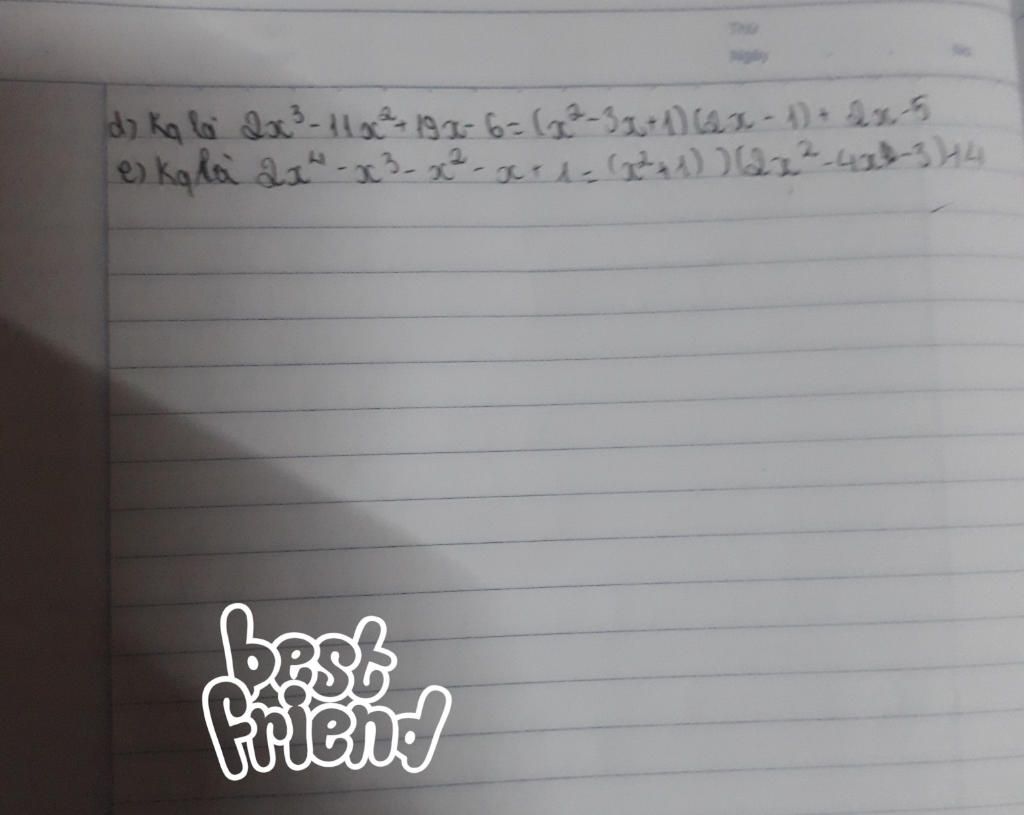 Thứ
Ngày
No.
d) Kq là 2x³ - 11x² + 19x - 6 = (x² - 3x + 1)(2x - 1) + 2x - 5
e) Kq là 2x⁴ - x³ - x² - x + 1 = (x² + 1))(2x² - 4x - 3) + 4
best
friend